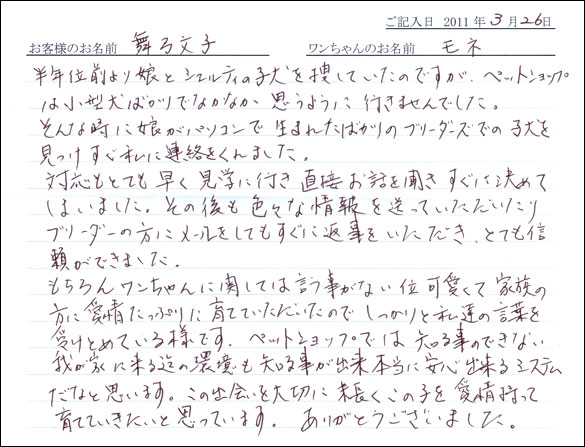 ご記入日 2011 年 3 月 26 日
お客様のお名前 舞弓文子 ワンちゃんのお名前 モネ
半年位前より娘とシェルティの子犬を捜していたのですが、ペットショップ
は小型犬ばかりでなかなか思うように行きませんでした。
そんな時に娘がパソコンで生まれたばかりのブリーダーズでの子犬を
見つけすぐ私に連絡をくれました。
対応もとても早く見学に行き直接お話を聞きすぐに決めて
しまいました。その後も色々な情報を送っていただいたり
ブリーダーの方にメールをしてもすぐに返事をいただき、とても信
頼ができました。
もちろんワンちゃんに関しては言う事がない位可愛くて家族の
方に愛情たっぷりに育てていただいたのでしっかりと私達の言葉を
受けとめている様です。ペットショップでは知る事のできない
我が家に来る迄の環境も知る事が出来本当に安心出来るシステム
だなと思います。この出会いを大切に末長くこの子を愛情持って
育てていきたいと思っています。ありがとうございました。